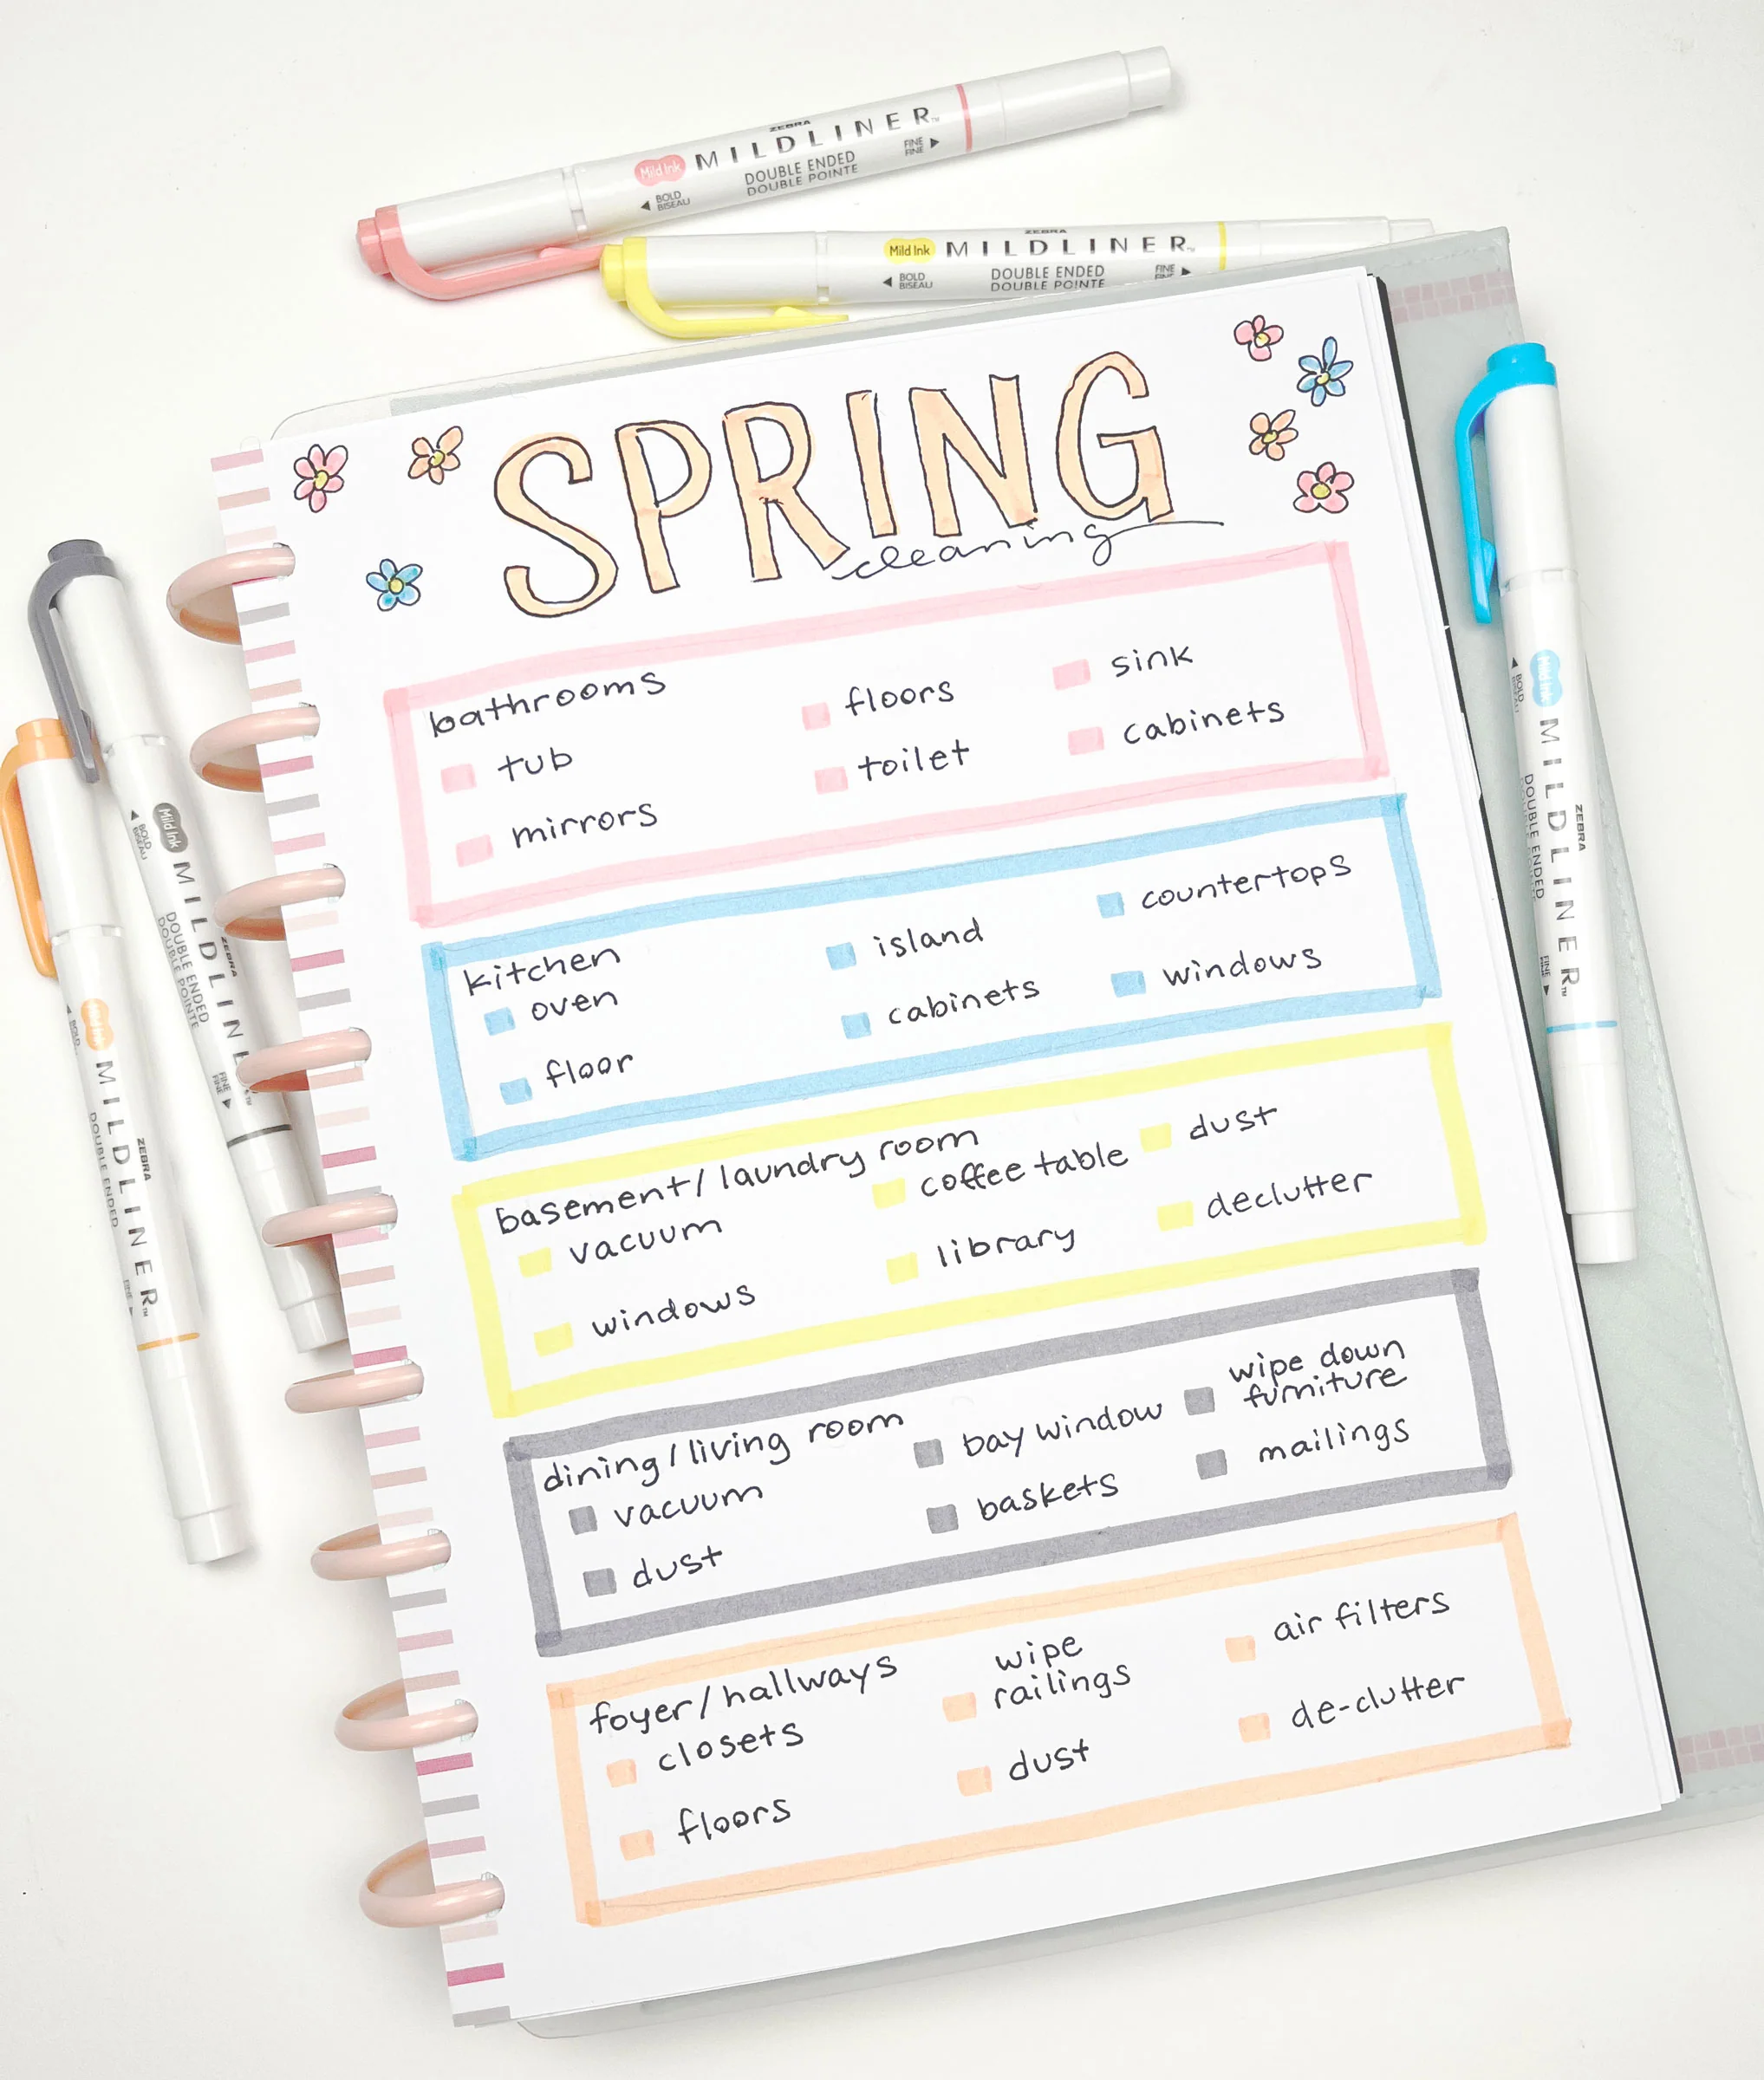 ZEBRA
Mild Ink MILDLINER™
DOUBLE ENDED
DOUBLE POINTE
◀ BOLD
BISEAU
FINE ▶
FINE
ZEBRA
Mild Ink MILDLINER™
DOUBLE ENDED
DOUBLE POINTE
◀ BOLD
BISEAU
FINE ▶
FINE
SPRING
cleaning
bathrooms
tub
mirrors
floors
toilet
sink
cabinets
kitchen
oven
floor
island
cabinets
countertops
windows
basement/laundry room
vacuum
windows
coffee table
library
dust
declutter
dining/living room
vacuum
dust
bay window
baskets
wipe down
furniture
mailings
foyer/hallways
closets
floors
wipe
railings
dust
air filters
de-clutter
Mild Ink MILDLINER™
ZEBRA
DOUBLE ENDED
DOUBLE POINTE
◀ BOLD
BISEAU
FINE ▶
FINE
Mild Ink MILDLINER™
ZEBRA
DOUBLE ENDED
◀ BOLD
Mild Ink MILDLINER™
ZEBRA
DOUBLE ENDED
◀ BOLD
FINE ▶